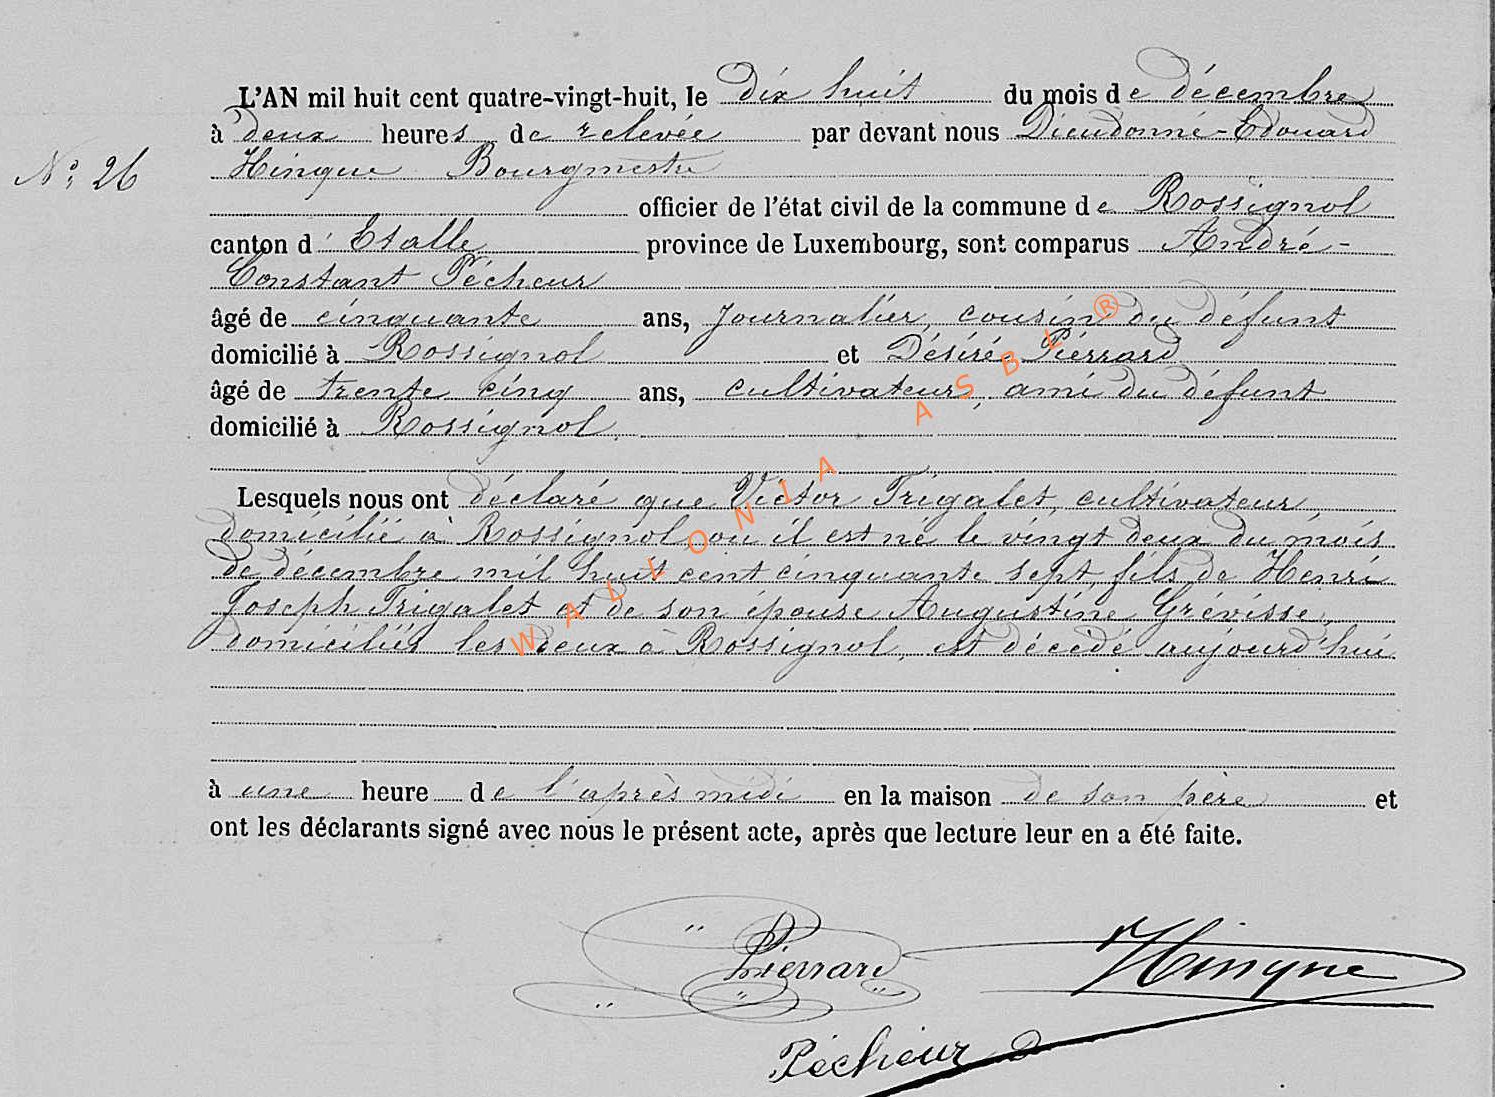 L'AN mil huit cent quatre-vingt-huit, le dix huit du mois de décembre
à deux heures de relevée par devant nous Dieudonné-Edouard
N° 26
Hinque Bourgmestre
officier de l'état civil de la commune de Rossignol
canton d'Etalle province de Luxembourg, sont comparus André-
Constant Pécheur
âgé de cinquante ans, journalier, cousin du défunt
domicilié à Rossignol et Désiré Piérrard
âgé de trente cinq ans, cultivateur, ami du défunt
domicilié à Rossignol.
Lesquels nous ont déclaré que Victor Trigalet, cultivateur,
domicilié à Rossignol, où il est né le vingt deux du mois
de décembre mil huit cent cinquante sept, fils de Henri
Joseph Trigalet et de son épouse Augustine Grévisse,
domiciliés les deux à Rossignol, est décédé aujourd'hui
à une heure de l'après midi en la maison de son père et
ont les déclarants signé avec nous le présent acte, après que lecture leur en a été faite.
Pierrard Hinque
Pécheur
WALLONIA ASBL ®